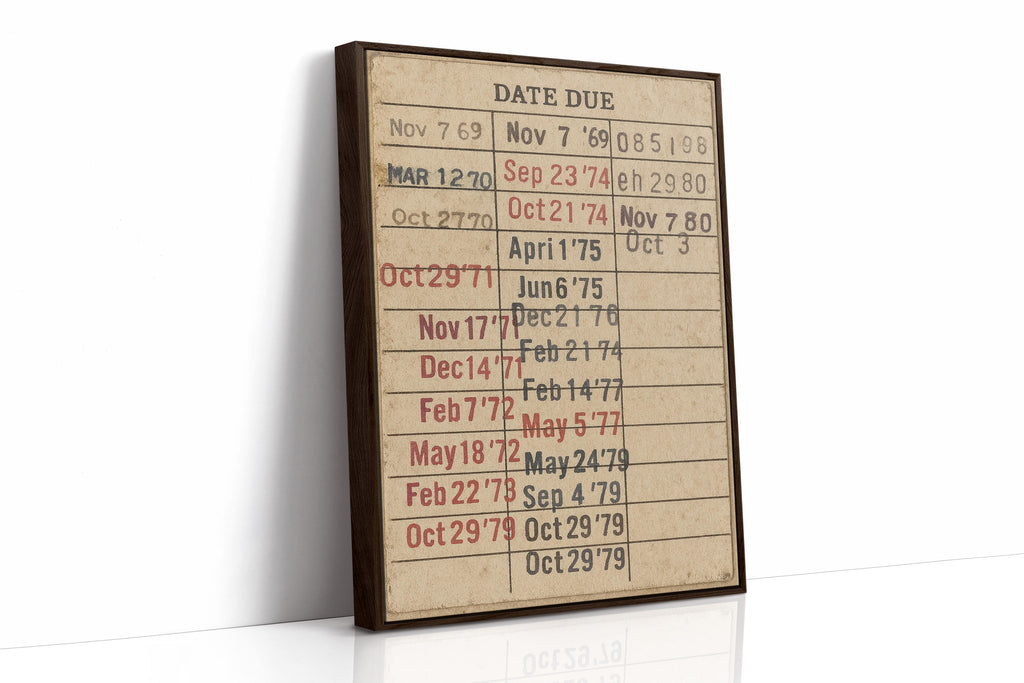 DATE DUE
Nov 7 69 Nov 7 '69 085198
MAR 12 70 Sep 23 '74 eh 29 80
Oct 27 70 Oct 21 '74 Nov 7 80
Apri 1 '75 Oct 3
Oct 29 '71 Jun 6 '75
Nov 17 '71 Dec 21 76
Dec 14 '71 Feb 21 74
Feb 7 '72 Feb 14 '77
May 5 '77
May 18 '72 May 24 '79
Feb 22 '73 Sep 4 '79
Oct 29 '79 Oct 29 '79
Oct 29 '79